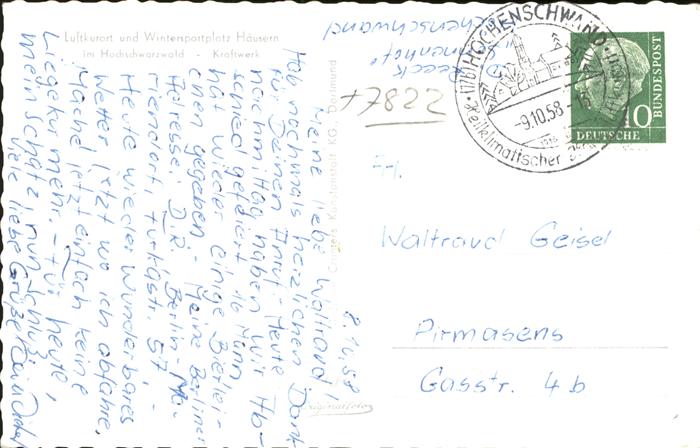 Luftkurort und Wintersportplatz Häusern
im Hochschwarzwald - Kraftwerk
Cramers Kunstanstalt KG, Dortmund
Originalfoto
8.10.58
Meine liebe Waltraud!
Hab nochmals herzlichen Dank
für Deinen Anruf. Heute
nachmittag haben wir Ab-
schied gefeiert 16 Mann
hat wieder einige Bierlei-
chen gegeben - Meine Berliner
Adresse: D.R. Berlin-Ma-
riendorf, Furkastr. 57, -
Heute wieder wunderbares
Wetter jetzt wo ich abfahre,
Mache jetzt einfach keine
Liegekur mehr. - Für heute,
mein Schatz nun Schluß,
viele liebe Grüße Dein Dieter
+7822
(17b) HÖCHENSCHWAND
-9.10.58-16
Heilklimatischer
DEUTSCHE
BUNDESPOST
10
Frl.
Waltraud Geisel
Pirmasens
Gasstr. 4b